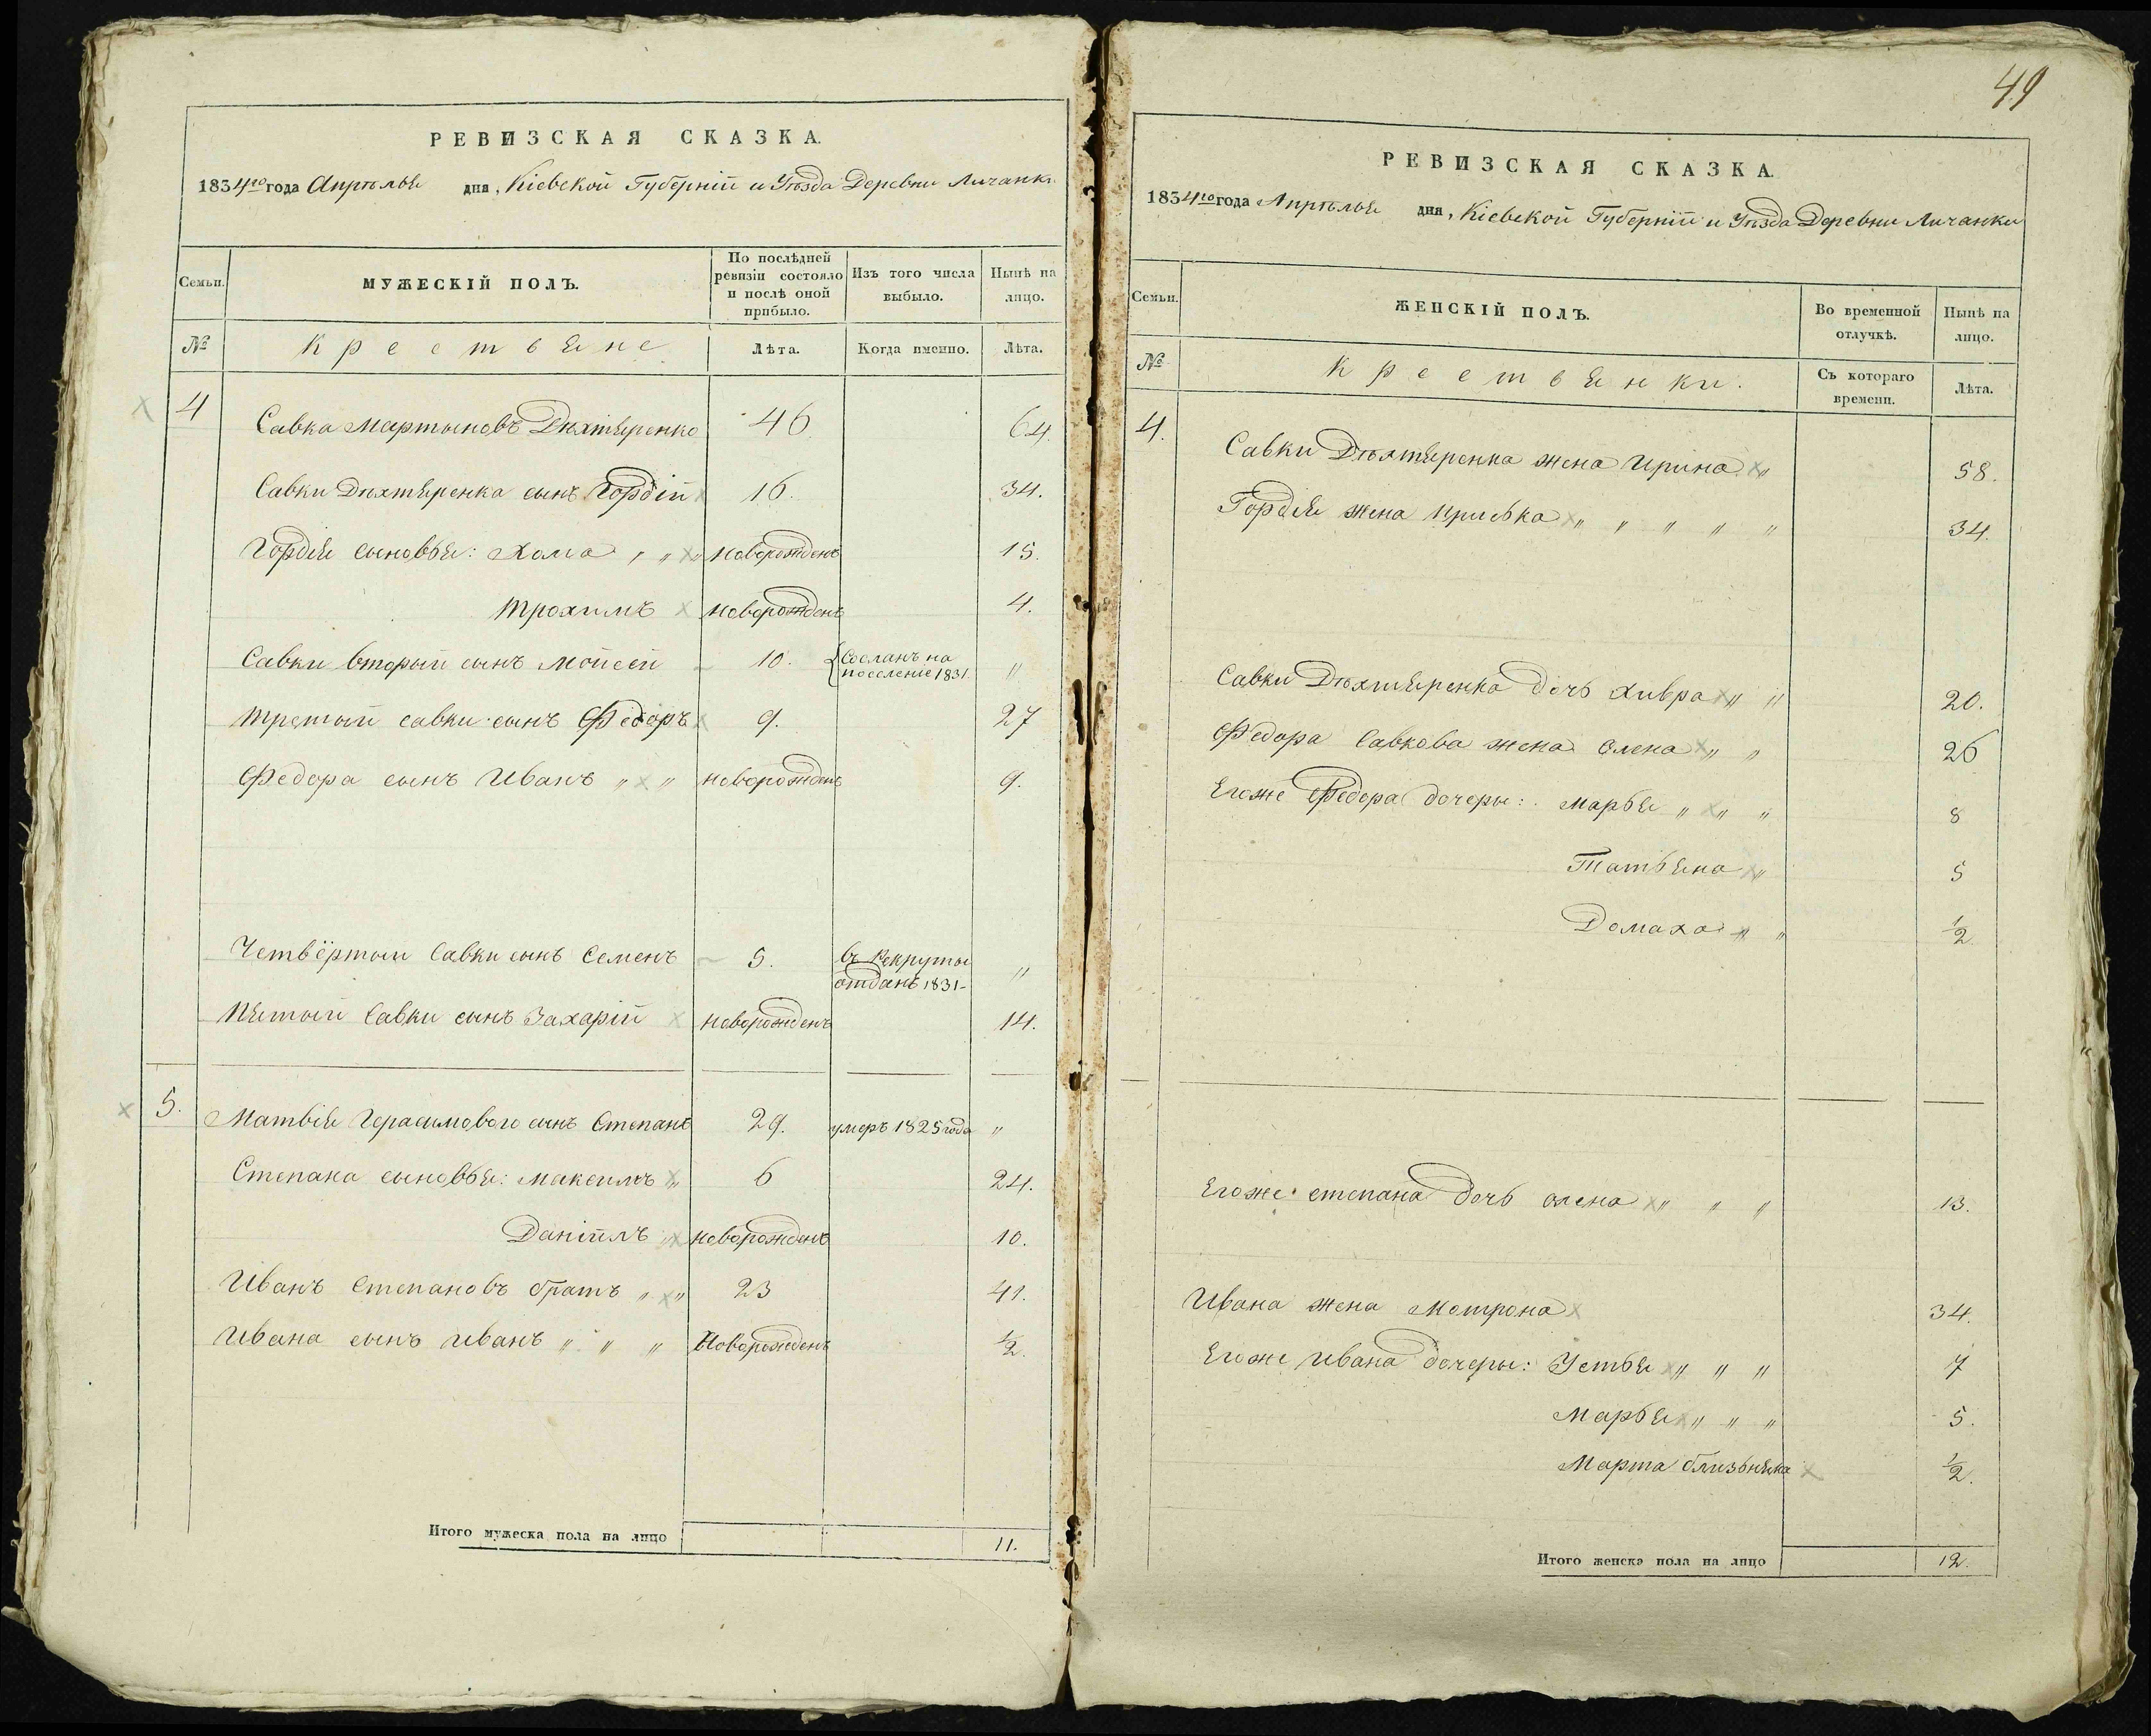 РЕВИЗСКАЯ СКАЗКА.
1834го года Апрѣля дня, Кіевской Губерніи и Уѣзда Деревни Личанки
Семьи. МУЖЕСКІЙ ПОЛЪ. По послѣдней ревизіи состояло и послѣ оной прибыло. Изъ того числа выбыло. Нынѣ на лицо.
№ Крестьяне Лѣта. Когда именно. Лѣта.
4 Савка Мартыновъ Дѣхтяренко 46 64.
Савки Дѣхтяренка сынъ Гордій 16. 34.
Гордія сыновья: Хома " " новорожденъ 15.
Трохимъ новорожденъ 4.
Савки вторый сынъ Мойсей 10. Сосланъ на поселеніе 1831. "
Третый савки сынъ Федоръ 9. 27
Федора сынъ Иванъ " " новорожденъ 9.
Четвёртый Савки сынъ Семенъ 5. въ рекруты отданъ 1831 "
Пятый Савки сынъ Захарій новорожденъ 14.
5. Матвія Герасимового сынъ Степанъ 29. умеръ 1825 года "
Степана сыновья: Максимъ " 6 24.
Даніилъ " новорожденъ 10.
Иванъ Степановъ братъ " " 23 41.
Ивана сынъ Иванъ " " " Новорожденъ ½.
Итого мужеска пола на лицо 11.
49
РЕВИЗСКАЯ СКАЗКА.
1834го года Апрѣля дня, Кіевской Губерніи и Уѣзда Деревни Личанки
Семьи. ЖЕНСКІЙ ПОЛЪ. Во временной отлучкѣ. Нынѣ на лицо.
№ Крестьянки. Съ котораго времени. Лѣта.
4. Савки Дѣхтяренка жена Ирина " 58.
Гордія жена Приська " " " " " 34.
Савки Дѣхтяренка дочь Хивра " " 20.
Федора Савкова жена Олена " " 26
Егоже Федора дочеры: Марья " " " 8
Татьяна " 5
Домаха " " ½
Егоже степана дочь олена " " " 13.
Ивана жена Мотрона 34.
Егоже Ивана дочеры: Устья " " " 7
Марья " " " 5.
Марта близьняка ½.
Итого женска пола на лицо 12.